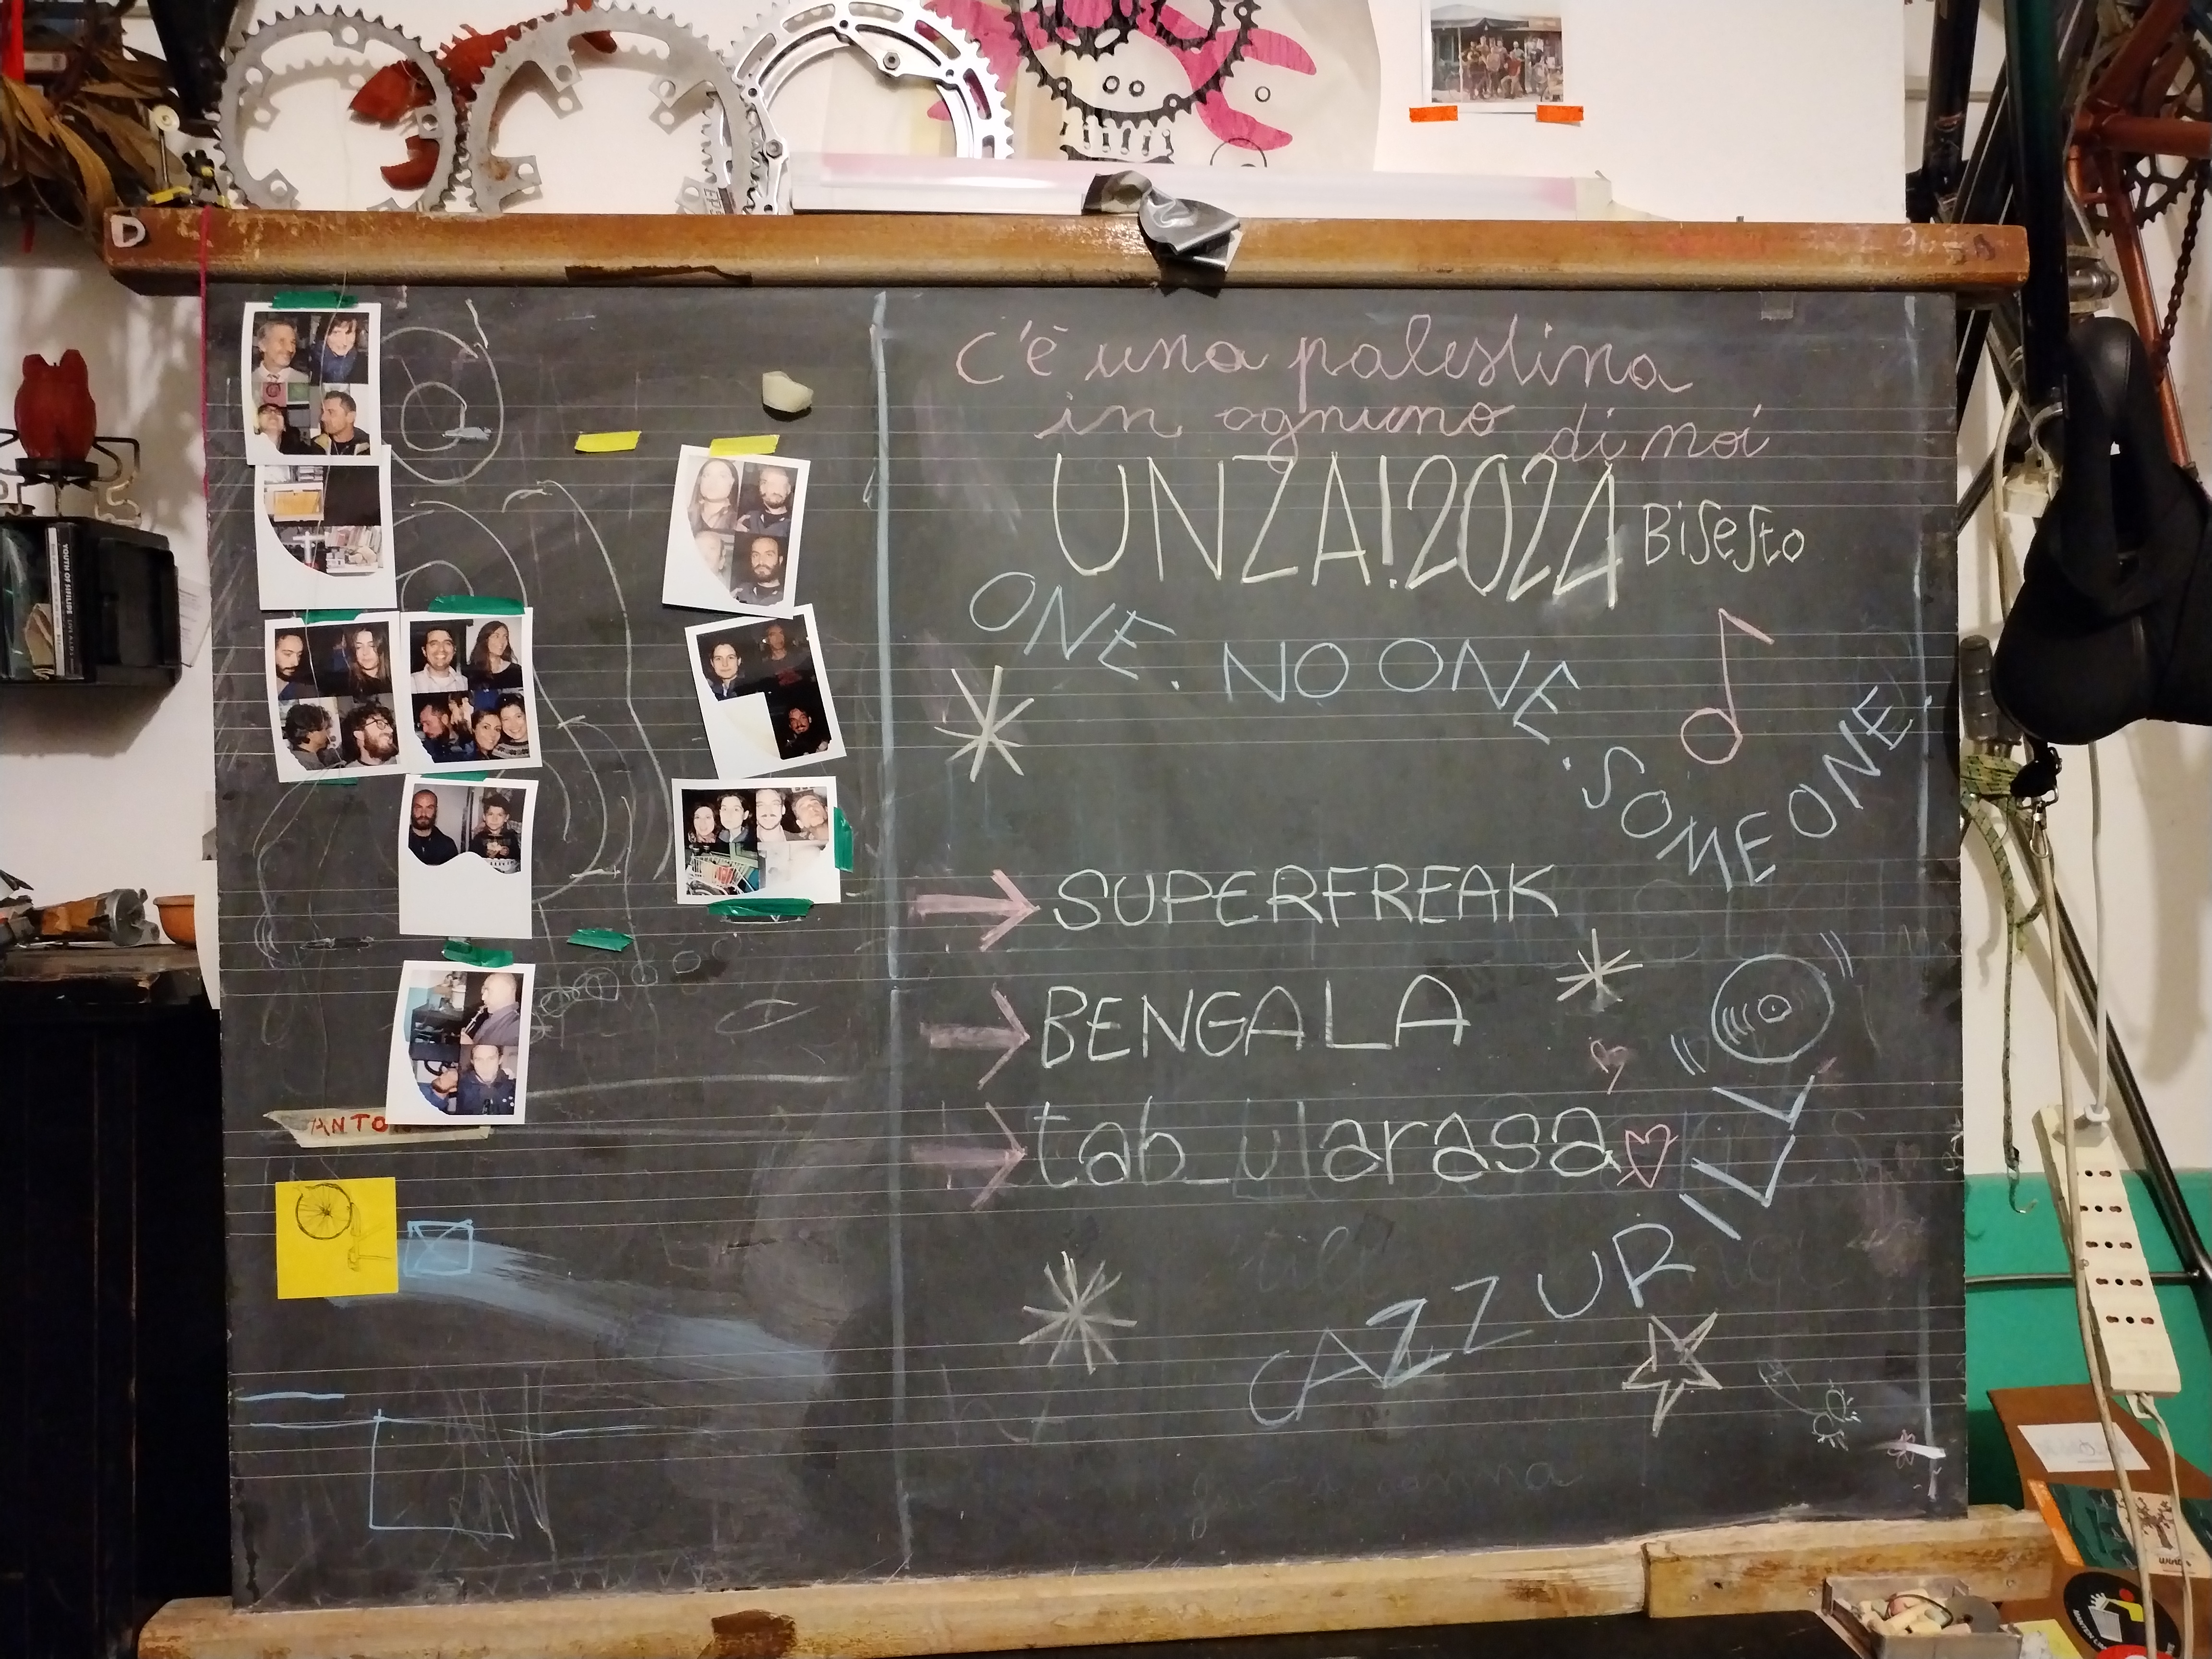 D
c'è una palestina
in ognuno di noi
UNZA! 2024 Bisesto
ONE. NO ONE. SOMEONE.
SUPERFREAK
BENGALA
tab_ularasa
CAZZURILL
ANTO
YOUTH OF